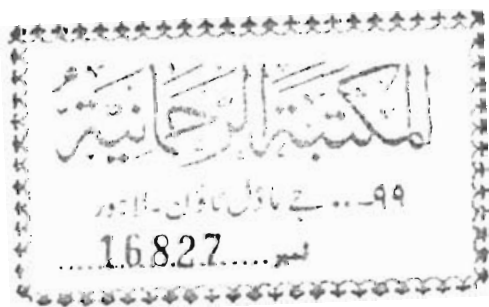 المكتبة الرحمانية
۹۹... جے ماڈل ٹاؤن - لاہور
نمبر....16827.....